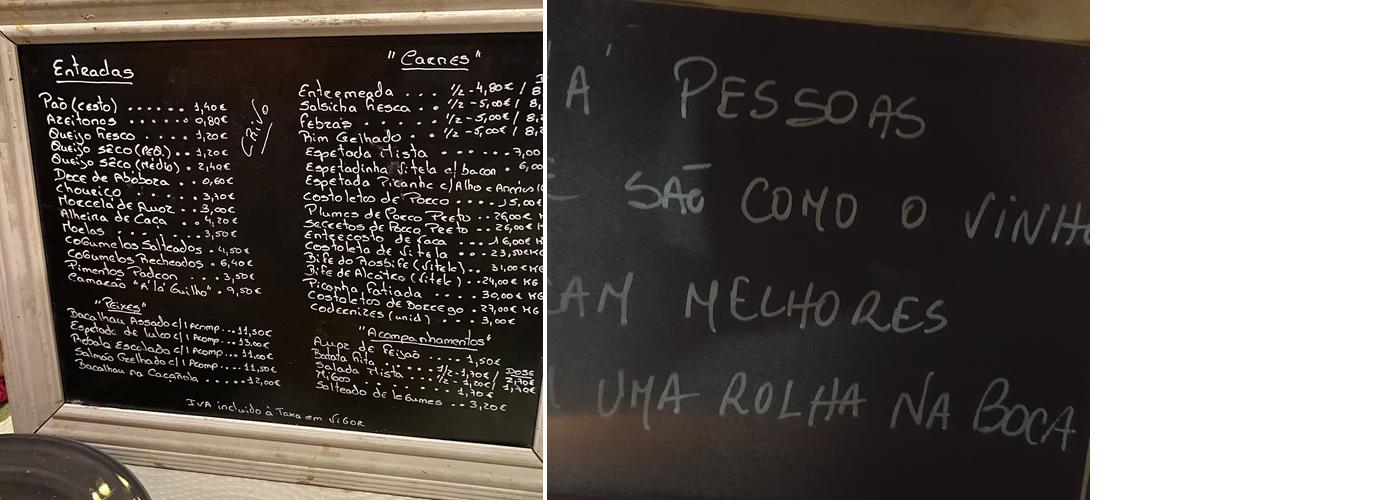 Entradas
Pão (cesto) ...... 1,40€
Azeitonas ...... 0,80€
Queijo Fresco .... 1,20€
Queijo Sêco (PEQ.) .. 1,20€
Queijo Sêco (Médio) . 2,40€
Doce de Abóbora .. 0,60€
Chouriço ..... 3,70€
Morcela de Arroz .. 3,00€
Alheira de Caça .. 4,20€
Moelas ...... 3,50€
Cogumelos Salteados . 4,50€
Cogumelos Recheados . 6,40€
Pimentos Padron .... 3,50€
Camarão "A'lá Guilho" . 9,50€
"Peixes"
Bacalhau Assado c/1 Acomp... 11,50€
Espetada de Lulas c/1 Acomp... 13,00€
c/1 Acomp... 11,00€
Salmão Grelhado c/1 Acomp... 11,50€
Bacalhau na ..... 12,00€
"Carnes"
Entremeada ... 1/2 - 4,80€ / 8
Salsicha Fresca .. 1/2 - 5,00€ / 8,
Febras ... 1/2 - 5,00€ / 8,
Rim Grelhado .. 1/2 - 5,00€ / 8,
Espetada Mista ...... 7,00
Espetadinha Vitela c/ bacon . 6,00
Espetada Picanha c/Alho e
Costoletas de Porco .... 15,00€
Plumas de Porco Preto .. 26,00€ K
Secretos de Porco Preto .. 26,00€ K
Entrecosto de Vaca ... 16,00€ K
Costoleta de Vitela ... 23,50€ KG
Bife do Rosbife (Vitela) .. 31,00€ KG
Bife de Alcatra (Vitela) . 24,00€ KG
Picanha Fatiada .... 30,00€ KG
Costoletas de Borrego . 27,00€ KG
Codornizes (unid) . 3,00€
"Acompanhamentos"
Arroz de Feijão ..... 1,50€
Batata Frita ...... 1/2 - 1,70€ / DOSE 2,70€
Salada Mista .... 1/2 - 1,20€ / 1,70€
Migas ....... 1,70€
Salteado de legumes .. 3,20€
IVA incluido à Taxa em VIGOR
A' PESSOAS
E SÃO COMO O VINHO
CAM MELHORES
UMA ROLHA NA BOCA